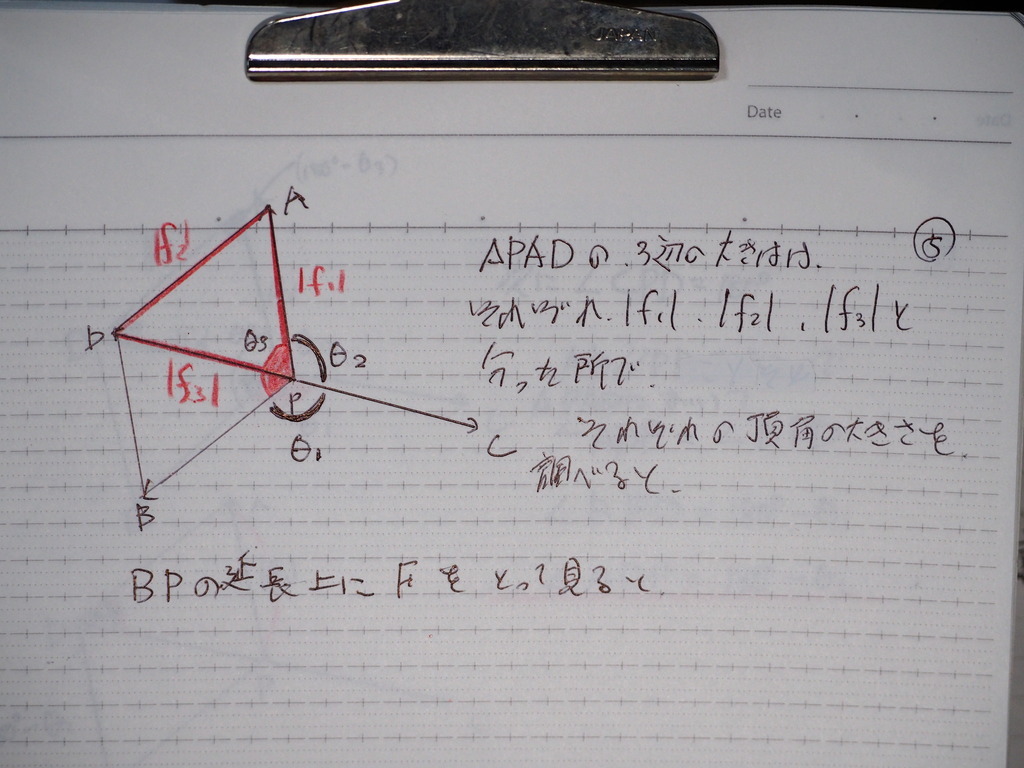 JAPAN
Date
A
|f2|
|f1|
D
θ3
θ2
|f3|
P
C
θ1
B
⑤
△PADの3辺の大きさは、
それぞれ、|f1|、|f2|、|f3|と
分った所で、
それぞれの頂角の大きさを、
調べると、
BPの延長上にEをとって見ると、